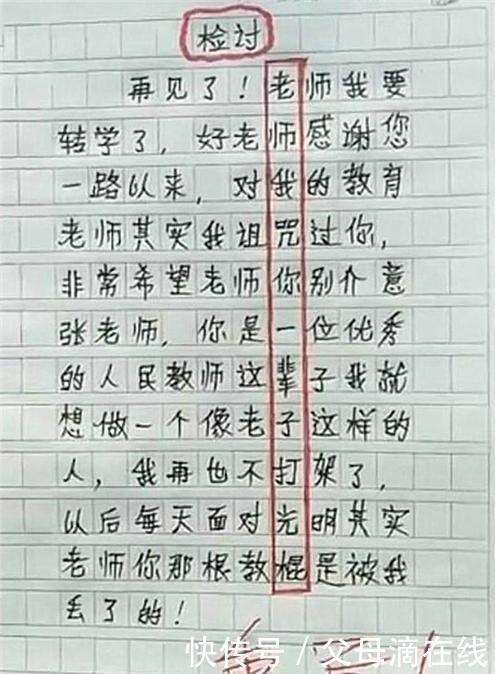 检讨
再见了！老师我要
转学了，好老师感谢您
一路以来，对我的教育
老师其实我诅咒过你，
非常希望老师你别介意
张老师，你是一位优秀
的人民教师这辈子我就
想做一个像老子这样的
人，我再也不打架了，
以后每天面对光明其实
老师你那根教棍是被我
丢了的！
快传号／父母滴在线